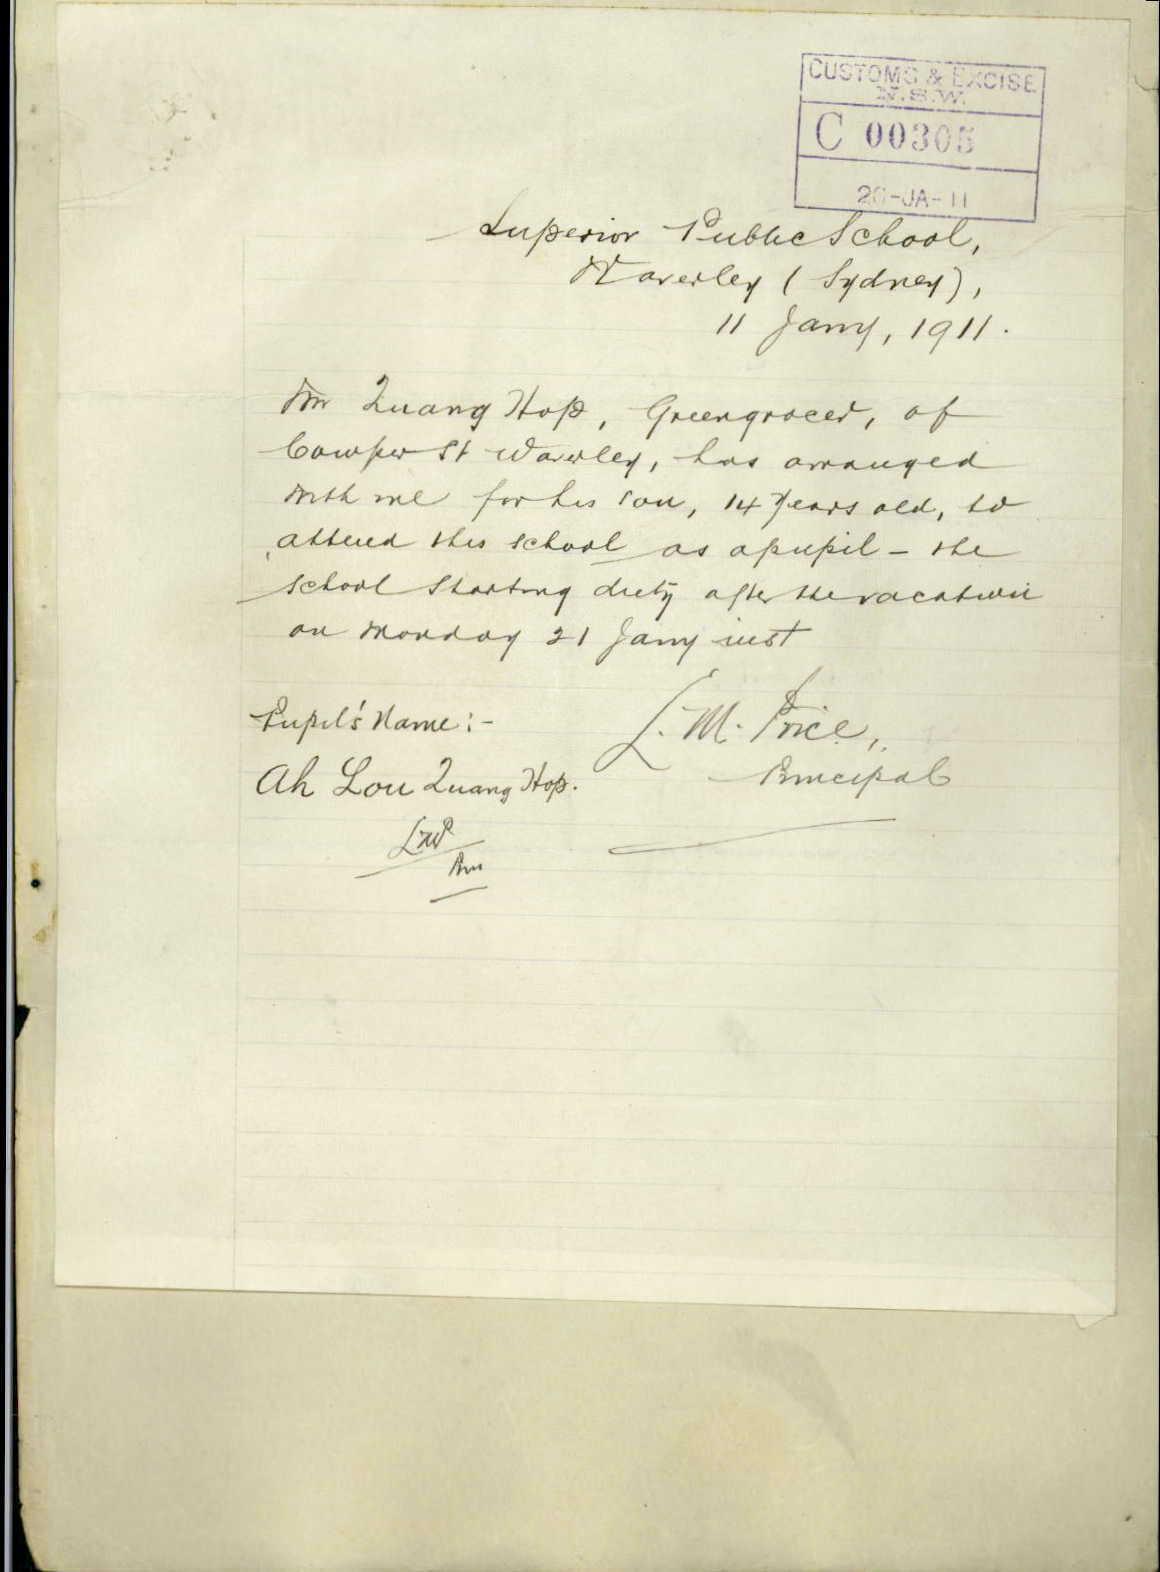 CUSTOMS & EXCISE
N.S.W.
C 00305
20-JA-11
Superior Public School,
Waverley (Sydney),
11 Jany, 1911.
Mr Quang Hop, Greengrocer, of
Cowper St Waverley, has arranged
with me for his son, 14 years old, to
attend this school as a pupil - the
school starting duty after the vacation
on Monday 21 Jany inst
Pupil's Name:-
L. M. Price,
Principal
Ah Lou Quang Hop.